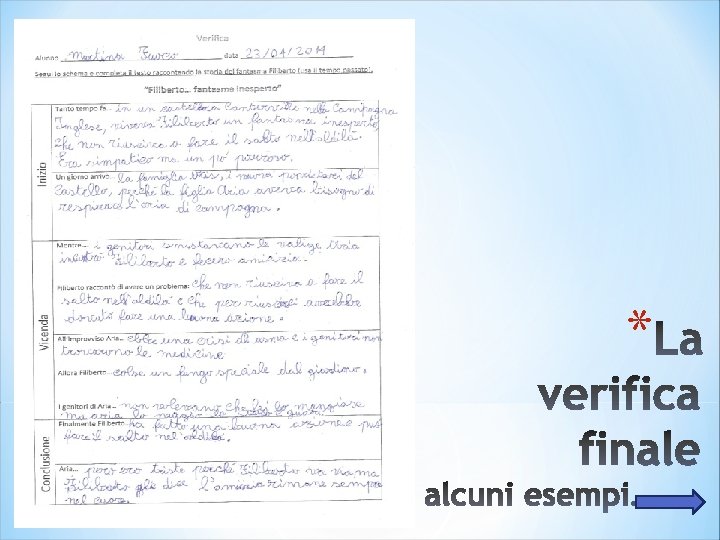 Verifica
Alunno Martina Turco data 23/04/2019
Segui lo schema e completa il testo raccontando la storia del fantasma Filiberto (usa il tempo passato).
"Filiberto... fantasma inesperto"
Inizio
Tanto tempo fa... in un castello a Canterville nella Campagna
Inglese, viveva Filiberto un fantasma inesperto
che non riusciva a fare il salto nell'aldilà.
Era simpatico ma un pò pauroso.
Un giorno arrivò la famiglia i nuovi proprietari del
Castello, perché la figlia Aria aveva bisogno di
respirare l'aria di campagna.
Vicenda
Mentre... i genitori smustavano le valige Aria
Filiberto e fecero amicizia.
Filiberto raccontò di avere un problema: che non riusciva a fare il
salto nell'aldilà e che per riuscirci avrebbe
dovuto fare una buona azione.
All'improvviso Aria... ebbe una crisi di asma e i genitori non
trovarono le medicine
Allora Filiberto... colse un fungo speciale dal giardino.
I genitori di Aria... non volevano che lei lo mangiasse
ma Aria lo mangiò lo stesso e guarì
Conclusione
Finalmente Filiberto ha fatto una buona azione e può
fare il salto nel aldilà.
Aria... però era triste perché Filiberto va via ma
Filiberto gli dice l'amicizia rimane sempre
nel cuore.
* La
verifica
finale
alcuni esempi.